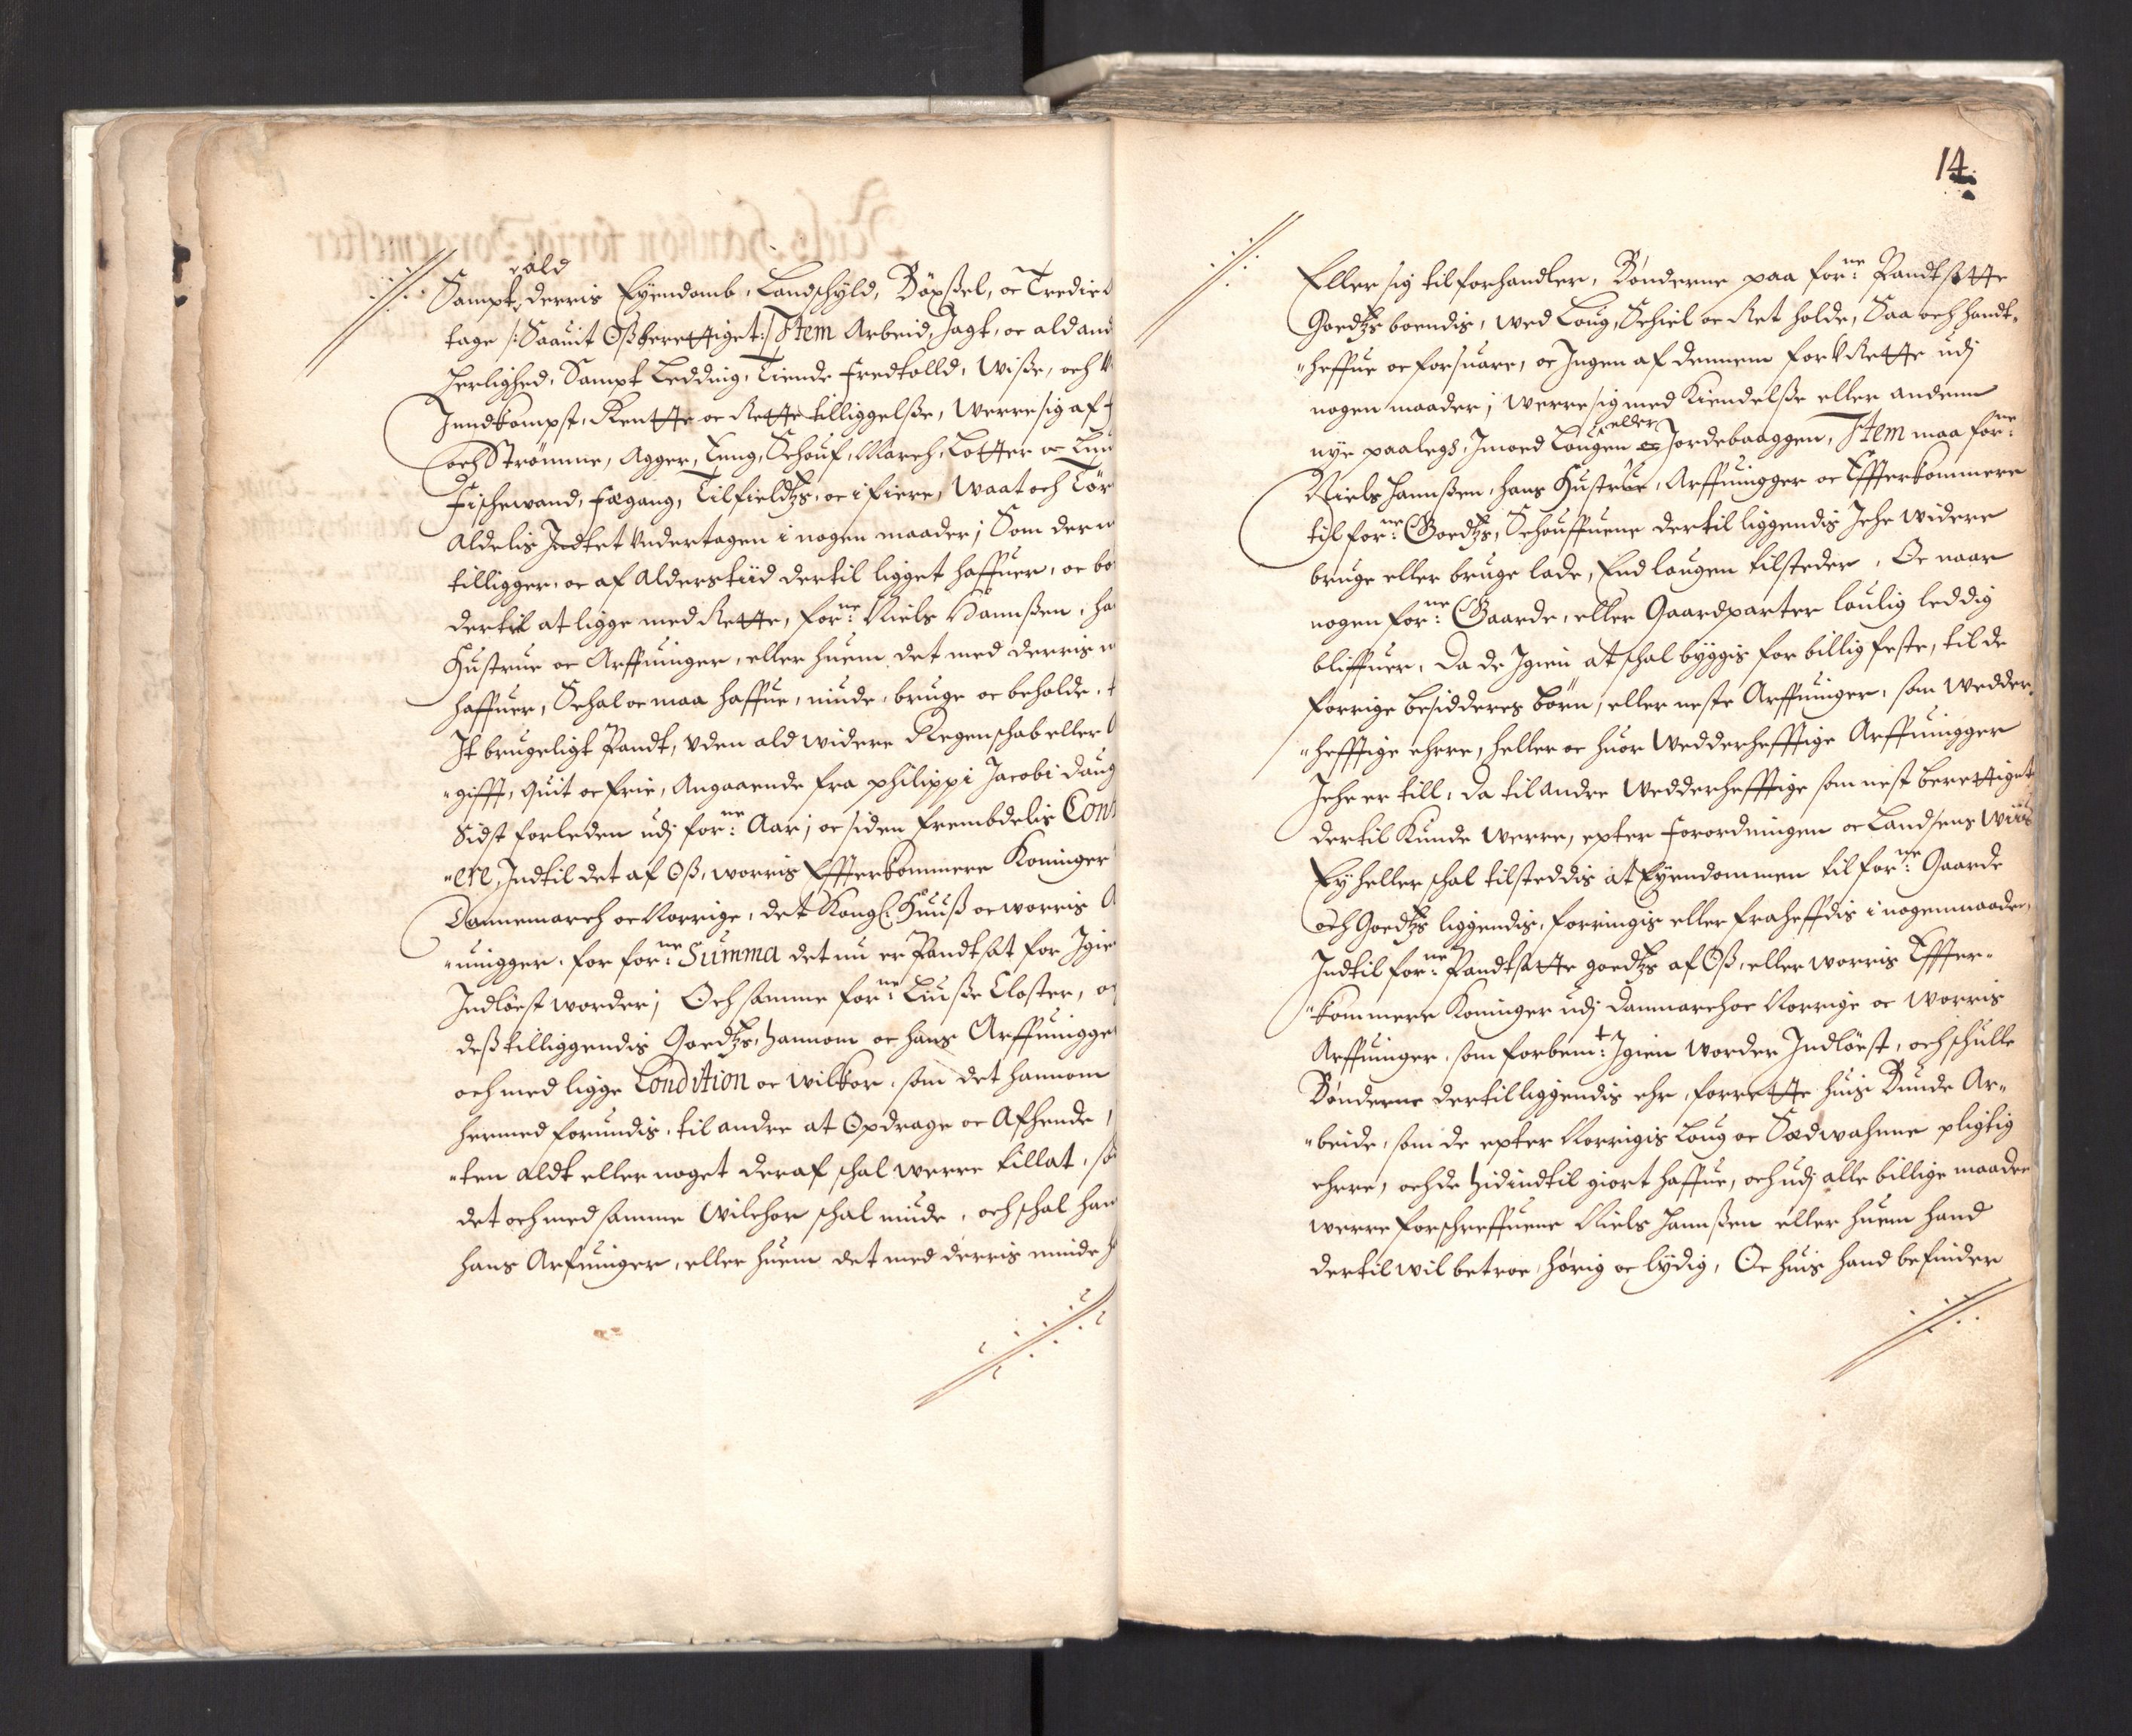 ald
Sampt, derris Eyendomb, Landschyld, Böxßel, oc Tredie
tage /: Saauit Oß berettiget :/ Item Arbeid, Jagt, oc ald and
Herlighed, Sampt Ledding, Tiende Fredtolld, Wiße, och
Inndkompst, Rentte oc Rette tilliggelße, Werre sig af
och Strömme, Agger, Eeng, Schouf, March, Lotter oc Lun
Fischewand, Fægang, Til fieldtz, oc i fiere, Waat och Tör
Aldelis Indtet undertagen i nogen maader; Som der
tilligger, oc af Alderstiid dertil ligget haffuer, oc bo
dertil at ligge med Rette, forne: Niels Hannßen, ha
Hustrue oc Arffuinger, eller huem det med derris
haffuer, Schal oc maa haffue, niude, bruge oc beholde,
It brugeligt Pandt, uden ald widere Regenschab eller
"gifft, Quit oc frie, Angaaende fra Philippi Jacobi daug
Sidst forleden udj forne: Aar; oc siden frembdelis Cont
"ere, Indtil det af Oß, worris Effterkommere Koninger
Dannemarch oc Norrige, det Kongl: Huuß oc worris A
"uingger, for forne: Summa det nu er Pandtsat for Igie
Indlöest worder; Och samme forne: Liuße Closter,
deß tilliggendis Goedtz, hannom oc hans Arffuingge
och med lige Condition oc wilkor, som det hannom
hermed forundis, til andre at Opdrage oc Afhende,
"ten Aldt eller noget deraf schal werre tillat, so
det och med samme Wilchor schal niude, och schal han
hans Arfuinger, eller huem det med derris minde h
14.
Eller sig tilforhandler, Bönderne paa forne: Pandtsatte
Goedtz boendis, wed Loug, Schiel oc Ret holde, Saa och handt,
"heffue oc forsuare, oc Ingen af dennem forUrette udj
nogen maader; Werre sig med Kiendelße eller andenn
eller
nye paaleg, Imoed Lougen oc Jordebaaggen, Item maa forne:
Niels Hannßen, hans Hustrue, Arffuingger oc Effterkommere
til forne: Goedtz, Schouffuene dertil liggendis Iche widere
bruge eller bruge lade, End lougen tilsteder. Oc naar
nogen forne: Gaarde, eller Gaardparter loulig leddig
bliffuer, Da de Igien at schal byggis for billig feste, til de
forrige besidderes börn, eller neste Arffuinger, som wedder,
"hefftige ehrre, heller oc huor Wedderhefftige Arffuingger
Iche er till, da til andre Wedderhefftige som nest berettiget
dertil Kunde werre, epter forordningen oc Landsens Wiis
Ey heller schal tilsteddis at Eyendommen til forne: Gaarde
och Goedtz liggendis, forringis eller fraheffdis i nogen maader,
Indtil forne: Pandtsatte goedtz af Oß, eller worris Effter-
"kommere Koninger udj Danmarch oc Norrige oc worris
Arffuinger, som forbemt: Igien worder Indlöest, och schulle
Bönderne dertil liggendis ehr, forrette huis Bunde Ar-
"beide, som de epter Norrigis Loug oc Sædwahnne pligtig
ehrre, och de hidindtil giort haffue, och udj alle billige maader
werre forschreffuene Niels Hannßen eller huem hand
dertil wil betroe, hörig oc lydig, Oc huis hand befinder